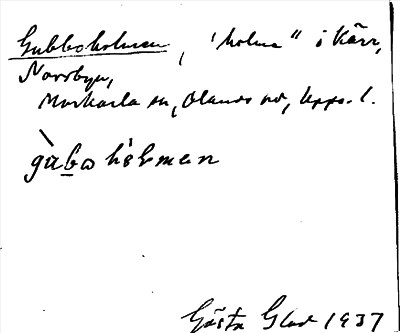 Gubboholmen, "holme" i Kärr,
Norrbyn,
Morkarla sn, Olands hd, Upps. l.
gùbo hòlmen
Gösta Glad 1937